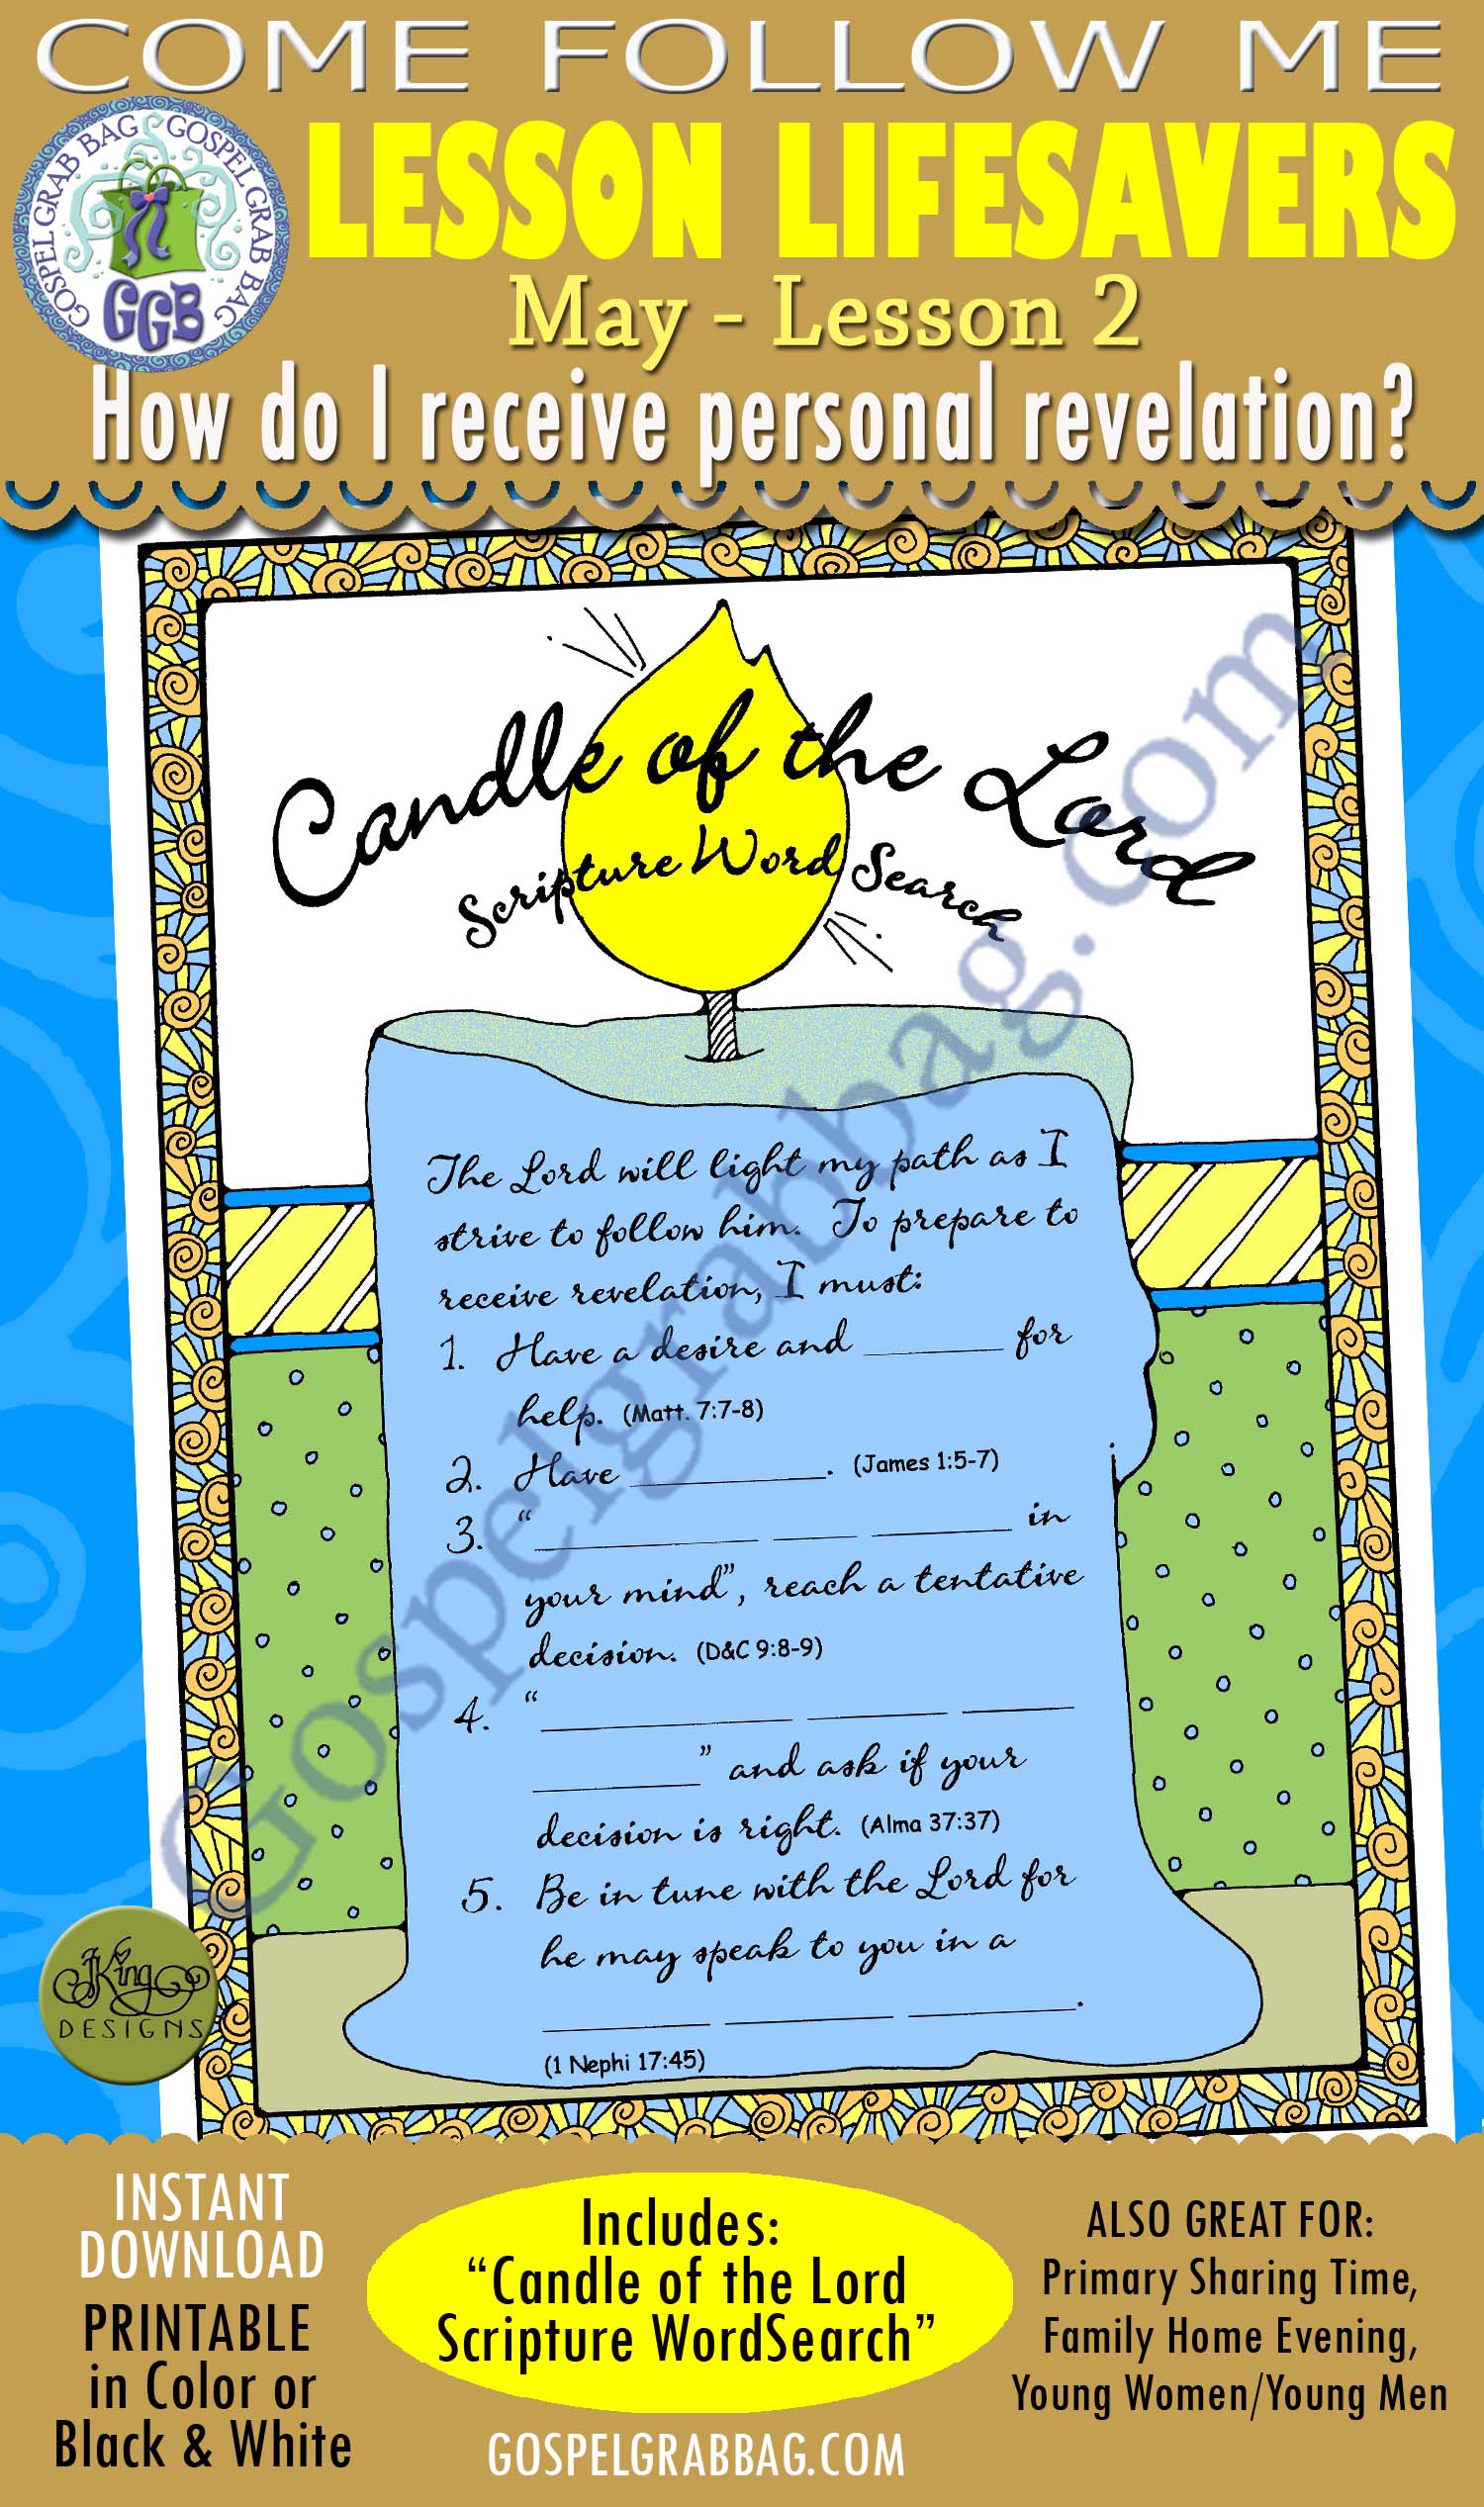 COME FOLLOW ME
GOSPEL GRAB BAG GOSPEL GRAB BAG
GGB
LESSON LIFESAVERS
May - Lesson 2
How do I receive personal revelation?
Candle of the Lord
Scripture Word Search
The Lord will light my path as I
strive to follow him. To prepare to
receive revelation, I must:
1. Have a desire and ______ for
help. (Matt. 7:7-8)
2. Have ________. (James 1:5-7)
3. “________ ____ ______ in
your mind”, reach a tentative
decision. (D&C 9:8-9)
4. “__________ ______ _____
_______” and ask if your
decision is right. (Alma 37:37)
5. Be in tune with the Lord for
he may speak to you in a
_______ _______ _______.
(1 Nephi 17:45)
Gospelgrabbag.com
JKing
DESIGNS
INSTANT
DOWNLOAD
PRINTABLE
in Color or
Black & White
Includes:
“Candle of the Lord
Scripture WordSearch”
GOSPELGRABBAG.COM
ALSO GREAT FOR:
Primary Sharing Time,
Family Home Evening,
Young Women/Young Men